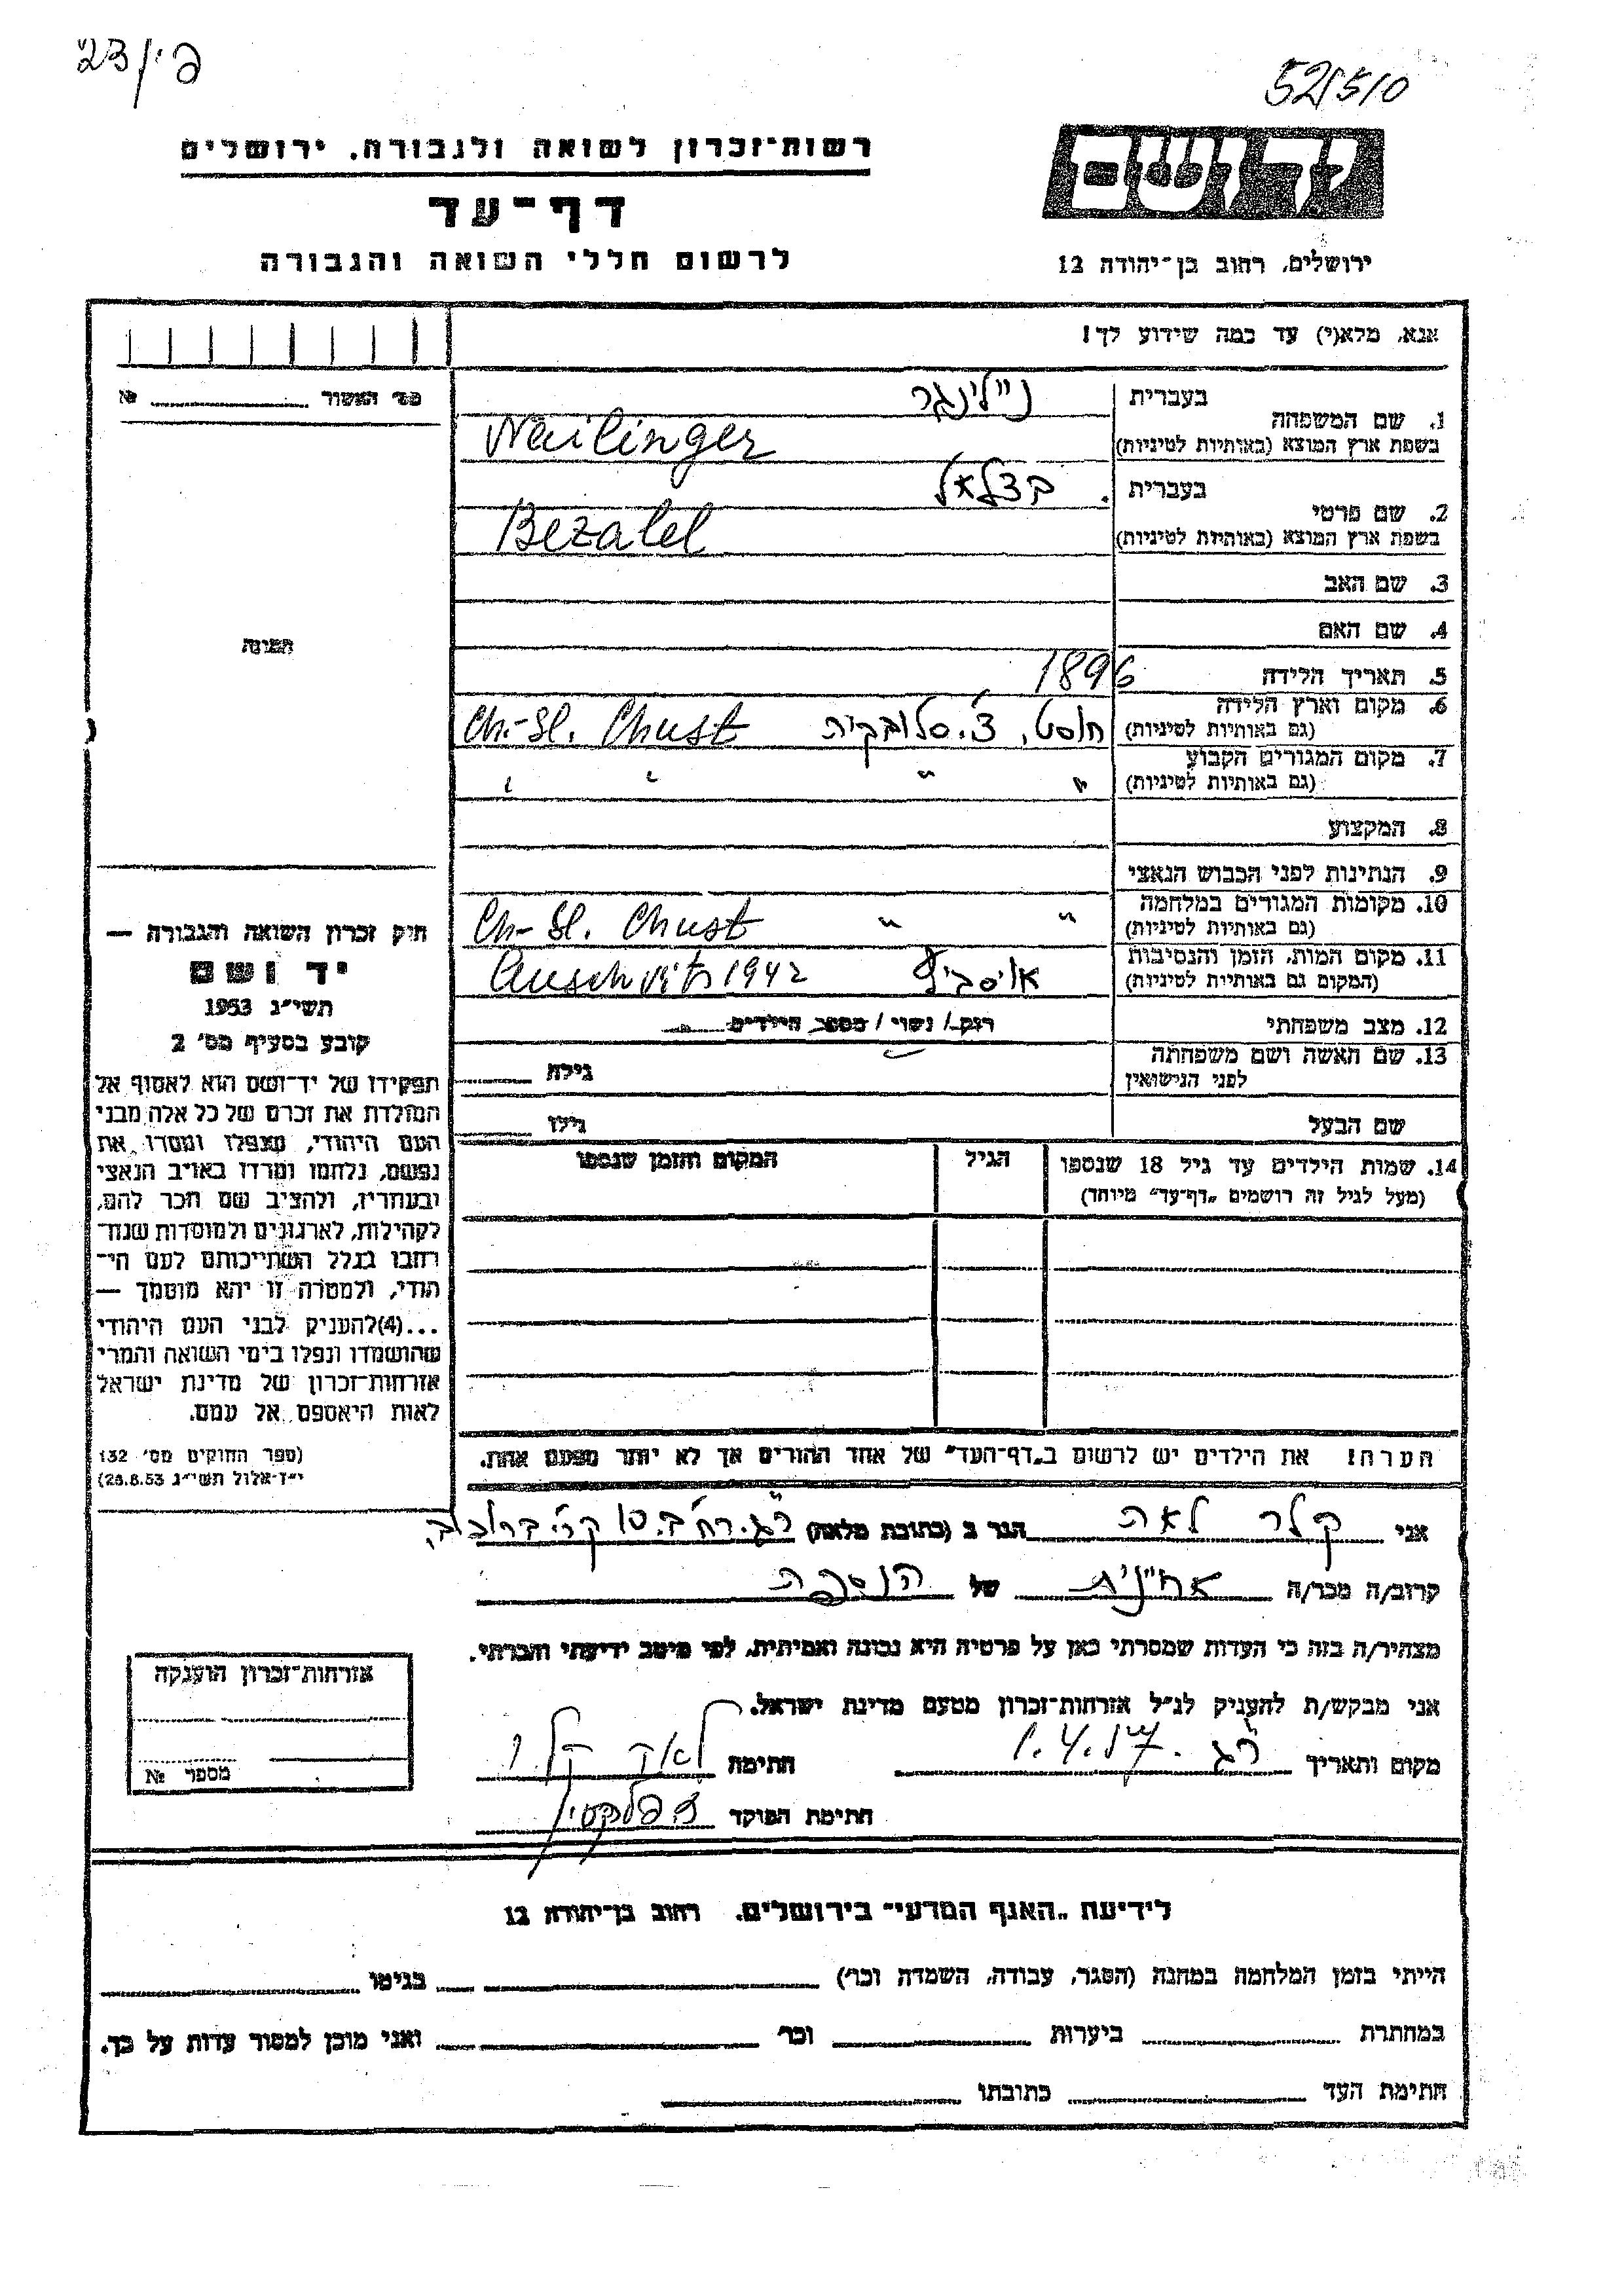 52/5/0
רשות־זכרון לשואה ולגבורה. ירושלים
דף־עד
לרשום חללי השואה והגבורה
יד ושם
ירושלים, רחוב בן־יהודה 12
אנא, מלא(י) עד כמה שידוע לך!
מס' האשור № 
בעברית ניילינגר
1. שם המשפחה
בשפת ארץ המוצא (באותיות לטיניות) Neilinger
בעברית בצלאל
2. שם פרטי
בשפת ארץ המוצא (באותיות לטיניות) Bezalel
3. שם האב
4. שם האם
5. תאריך הלידה 1896
6. מקום וארץ הלידה
(גם באותיות לטיניות) חוסט, צ'. סלובקיה Ch.-Sl. Chust
7. מקום המגורים הקבוע
(גם באותיות לטיניות) " " " "
8. המקצוע
9. הנתינות לפני הכבוש הנאצי
10. מקומות המגורים במלחמה
(גם באותיות לטיניות) " " Ch-Sl. Chust
11. מקום המות, הזמן והנסיבות
(המקום גם באותיות לטיניות) 1942
12. מצב משפחתי רוק/ נשוי/ מספר הילדים
13. שם האשה ושם משפחתה
לפני הנישואין גילה
שם הבעל גילו
14. שמות הילדים עד גיל 18 שנספו
(מעל לגיל זה רושמים „דף־עד" מיוחד)
הגיל
המקום והזמן שנספו
הערה! את הילדים יש לרשום ב„דף־העד" של אחד ההורים אך לא יותר מפעם אחת.
תמונה
חוק זכרון השואה והגבורה —
יד ושם
תשי"ג 1953
קובע בסעיף מס' 2
תפקידו של יד־ושם הוא לאסוף אל
המולדת את זכרם של כל אלה מבני
העם היהודי, שנפלו ומסרו את
נפשם, נלחמו ומרדו באויב הנאצי
ובעוזריו, ולהציב שם וזכר להם,
לקהילות, לארגונים ולמוסדות שנח־
רבו בגלל השתייכותם לעם הי־
הודי, ולמטרה זו יהא מוסמך —
...(4)להעניק לבני העם היהודי
שהושמדו ונפלו בימי השואה והמרי
אזרחות־זכרון של מדינת ישראל
לאות היאספם אל עמם.
(ספר החוקים מס' 132
י"ז־אלול תשי"ג 28.8.53)
אני קלר לאה הגר ב (כתובת מלאה) ר"ג. רח' ב. 10
קרוב/ה מכר/ה אחינית של הנספה
מצהיר/ה בזה כי העדות שמסרתי כאן על פרטיה היא נכונה ואמיתית, לפי מיטב ידיעתי והכרתי.
אני מבקש/ת להעניק לנ"ל אזרחות־זכרון מטעם מדינת ישראל.
מקום ותאריך ר"ג 1.4.57 חתימה לאה קלר
חתימת הפוקד
אזרחות־זכרון הוענקה
מספר №
לידיעת „האגף המדעי" בירושלים. רחוב בן־יהודה 12
הייתי בזמן המלחמה במחנה (הסגר, עבודה, השמדה וכו') בגיטו
במחתרת ביערות וכו' ואני מוכן למסור עדות על כך.
חתימת העד כתובתו